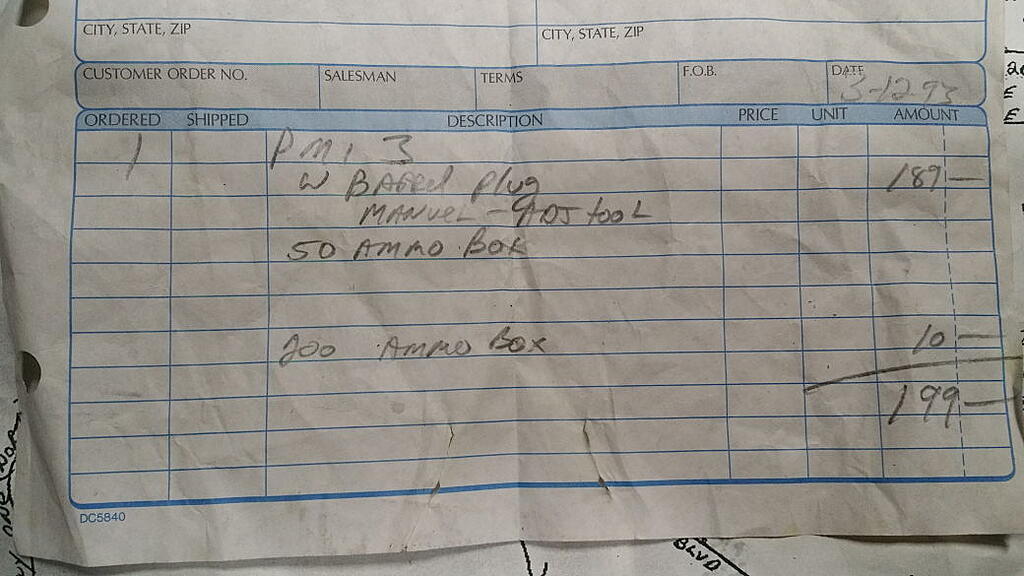 CITY, STATE, ZIP CITY, STATE, ZIP
CUSTOMER ORDER NO. SALESMAN TERMS F.O.B. DATE
3-12-93
ORDERED SHIPPED DESCRIPTION PRICE UNIT AMOUNT
1 PMI 3
W BARREL Plug 189 —
MANUEL - ADJ tool
50 AMMO BOX
200 AMMO BOX 10 —
199 —
DC5840
BLVD